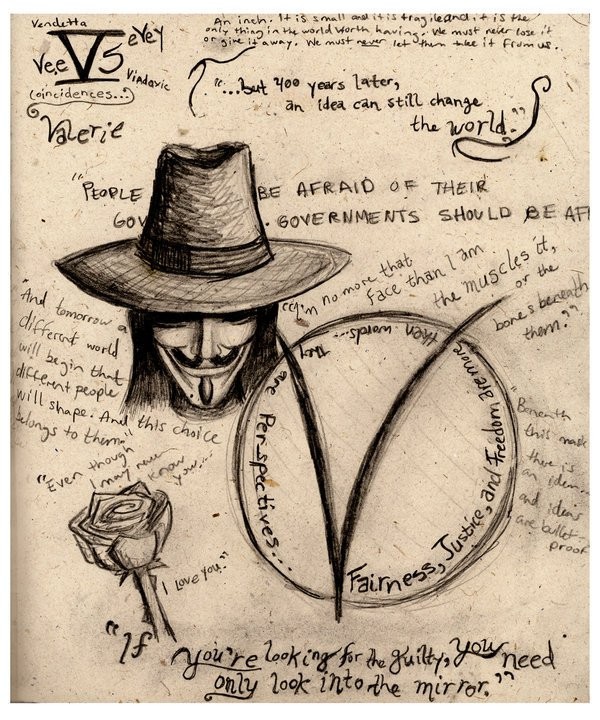 Vendetta
V5
eVeY
Vee
Viadoxic
(coincidences...)
Valerie
An inch. It is small and it is fragile and it is the
only thing in the world worth having. We must never lose it
or give it away. We must never let them take it from us.
"...but 400 years later,
an idea can still change
the world."
"PEOPLE BE AFRAID OF THEIR
GOV . GOVERNMENTS SHOULD BE AF
"I'm no more that
face than I am
the muscles it,
or the
bones beneath
them."
"And tomorrow a
different world
will begin that
different people
will shape. And this choice
belongs to them."
Fairness, Justice, and Freedom are more
then words... they
are Perspectives...
"Beneath
this mask
there is
an idea...
and ideas
are bullet-
proof
"Even though
I may never
know
you...
I love you."
"If you're looking for the guilty, you need
only look into the mirror."